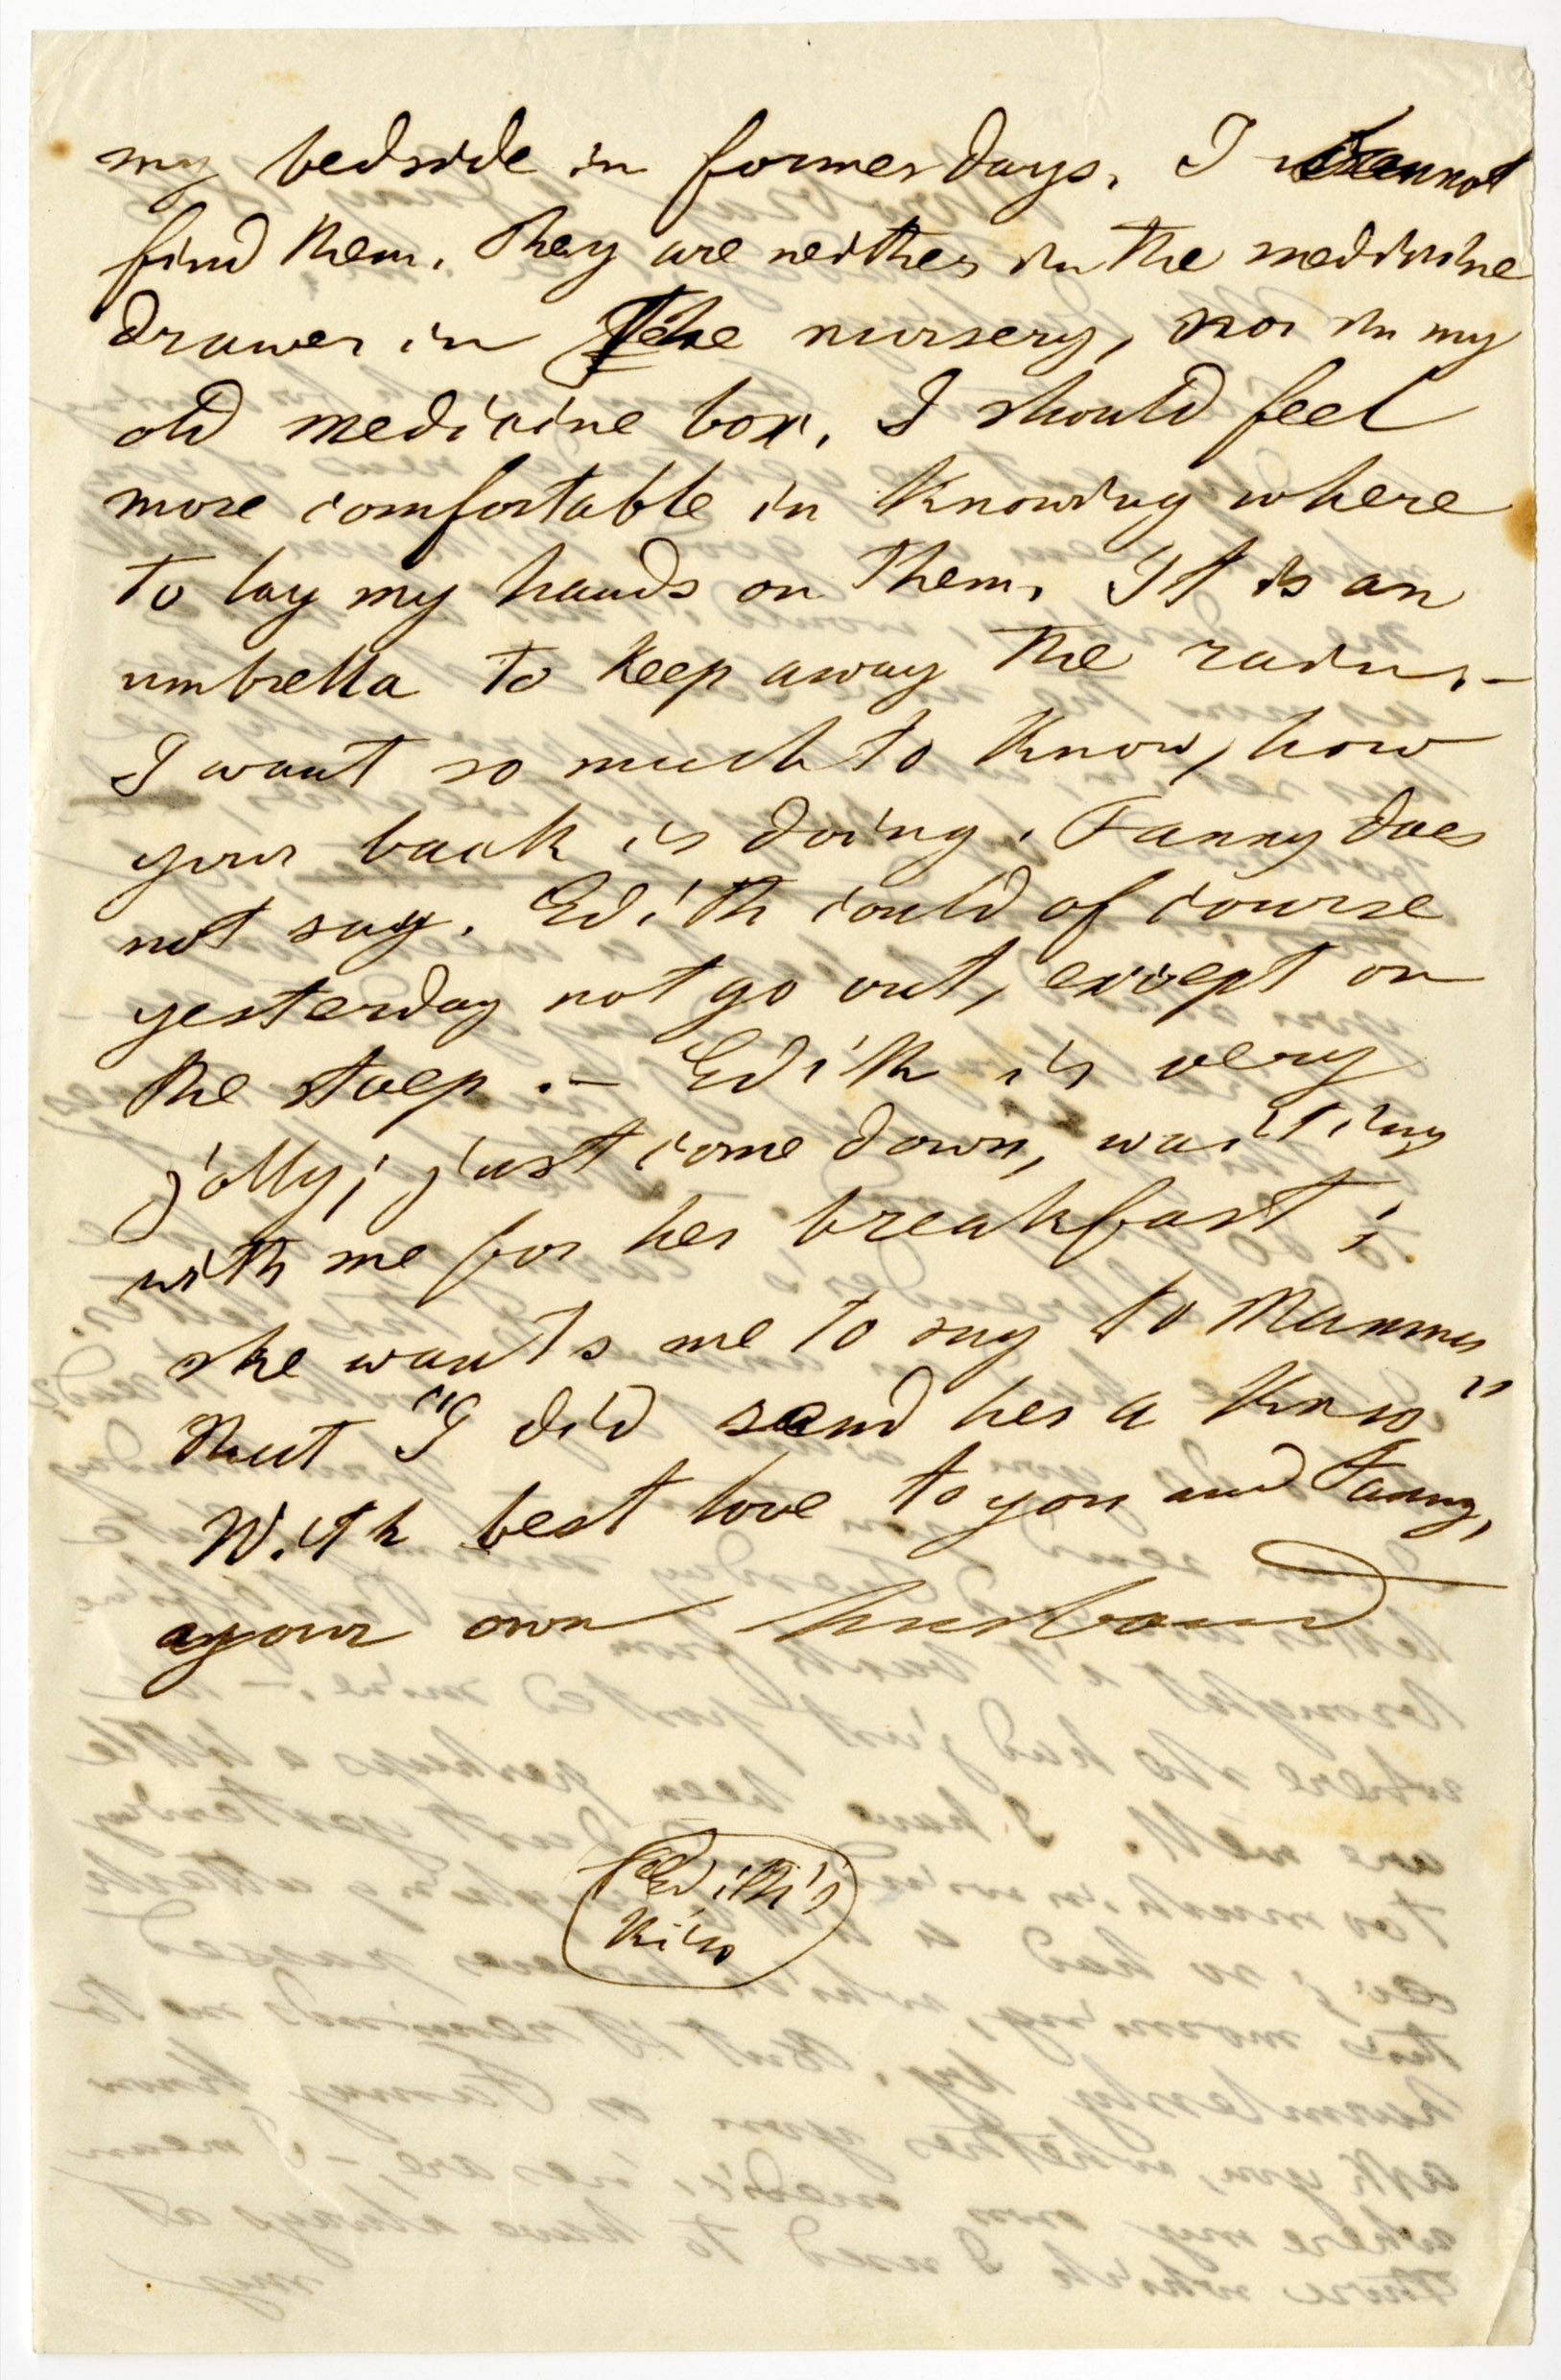 my bedside in former days. I cannot
find them. They are neither in the medicine
drawer in the nursery, nor in my
old medicine box. I should feel
more comfortable in knowing where
to lay my hands on them. It is an
umbrella to keep away the rain. —
I want so much to know, how
your back is doing. Fanny does
not say. Edith could of course
yesterday not go out, except on
the stoep. — Edith is very
jolly; just come down, waiting
with me for her breakfast;
she wants me to say to Mamma
that "I did send her a kiss"
With best love to you and Fanny,
your own husband
Edith's
kiss